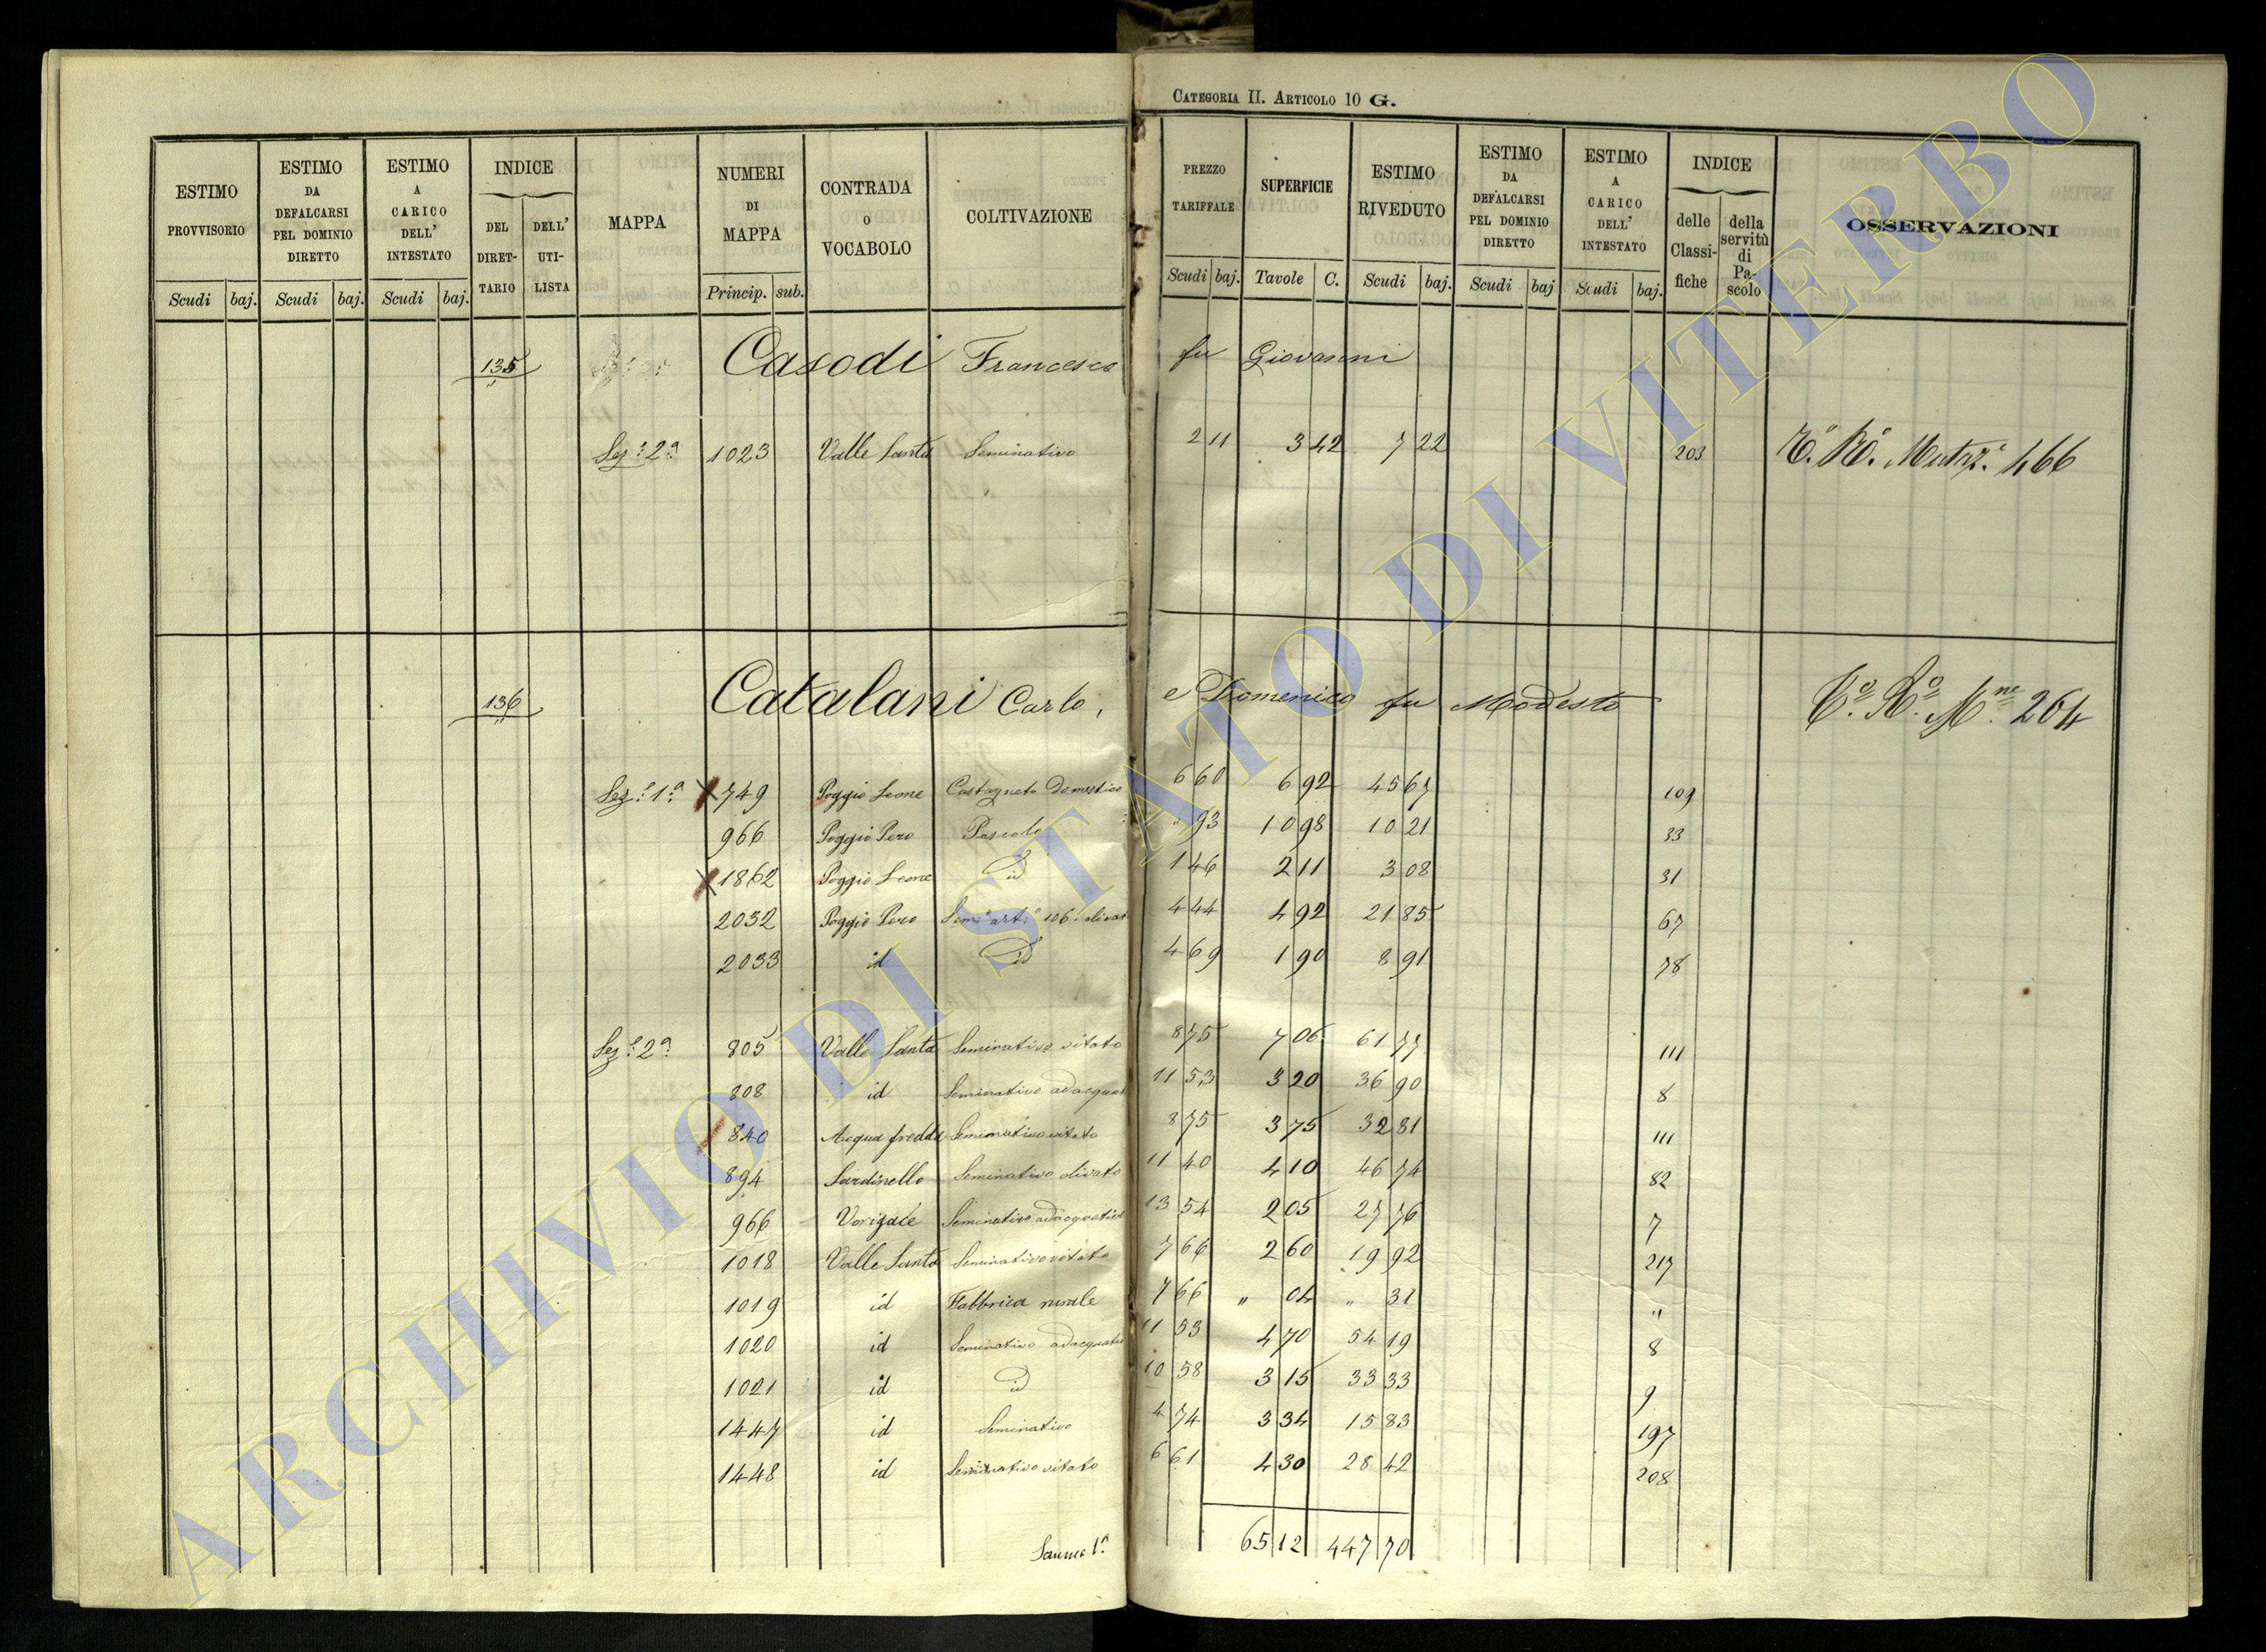 CATEGORIA II. ARTICOLO 10 G.
ESTIMO PROVVISORIO Scudi baj.
ESTIMO DA DEFALCARSI PEL DOMINIO DIRETTO Scudi baj.
ESTIMO A CARICO DELL' INTESTATO Scudi baj.
INDICE DEL DIRETTARIO DELL' UTILISTA
MAPPA
NUMERI DI MAPPA Princip. sub.
CONTRADA O VOCABOLO
COLTIVAZIONE
PREZZO TARIFFALE Scudi baj.
SUPERFICIE Tavole C.
ESTIMO RIVEDUTO Scudi baj.
ESTIMO DA DEFALCARSI PEL DOMINIO DIRETTO Scudi baj
ESTIMO A CARICO DELL' INTESTATO Scudi baj.
INDICE delle Classifiche della servitù di Pascolo
OSSERVAZIONI
135 Casodi Francesco fu Giovanni
Sez.e 2a 1023 Valle Santa Seminativo 2 11 3 42 7 22 203 To. Ro. Mutaz.e 466
136 Catalani Carlo, e Domenico fu Modesto To. Ro. Mne. 264
Sez.e 1a 749 Poggio Leone Castagneto domestico 6 60 6 92 45 67 109
966 Poggio Pero Pascolo " 93 10 98 10 21 33
1862 Poggio Leone id 1 46 2 11 3 08 31
2032 Poggio Pero Semo art.o 106 olivat 4 44 4 92 21 85 67
2033 id id 4 69 1 90 8 91 78
Sez.e 2a 805 Valle Santa Seminativo vitato 8 75 7 06 61 77 111
808 id Seminativo adacquat 11 53 3 20 36 90 8
840 Acqua fredda Seminativo vitato 8 75 3 75 32 81 111
894 Sardinello Seminativo olivato 11 40 4 10 46 74 82
966 Seminativo adacquativo 13 54 2 05 27 76 7
1018 Valle Santa Seminativo vitato 7 66 2 60 19 92 217
1019 id Fabbrica rurale 7 66 " 04 " 31 "
1020 id Seminativo adacquato 11 53 4 70 54 19 8
1021 id id 10 58 3 15 33 33 9
1447 id Seminativo 4 74 3 34 15 83 197
1448 id Seminativo vitato 6 61 4 30 28 42 208
Somma 1a 65 12 447 70
ARCHIVIO DI STATO DI VITERBO